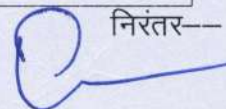 निरंतर––